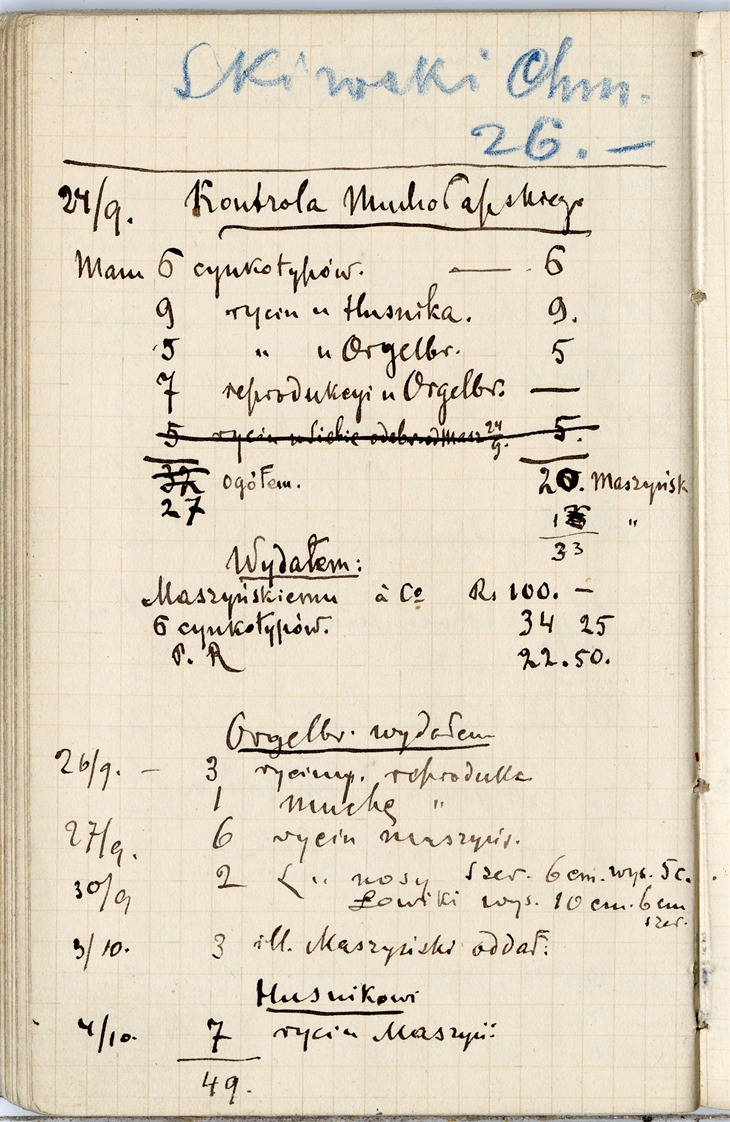 Skiwski Chm.
26.—
24/9. Kontrola Muchołapskiego
Mam 6 cynkotypów. — 6
9 rycin u Husnika. 9.
5 " u Orgelbr. 5
7 reprodukcyi u Orgelbr. —
5 rycin u siebie odebr. od Masz 24/9. 5.
32 ogółem. 20. Maszyńsk
27 "
33
Wydałem:
Maszyńskiemu à Co R. 100. —
6 cynkotypów. 34 25
P. R 22.50.
Orgelbr. wydałem
26/9. — 3 ryciny. reprodukc
1 muchę "
27/9. 6 rycin maszyńs.
30/9 2 " nosy szer. 6 cm. wys. 5 c.
Łowiki wys. 10 cm. 6 cm
szer.
3/10. 3 ill. Maszyński oddał.
Husnikowi
4/10. 7 rycin Maszyń:
49.